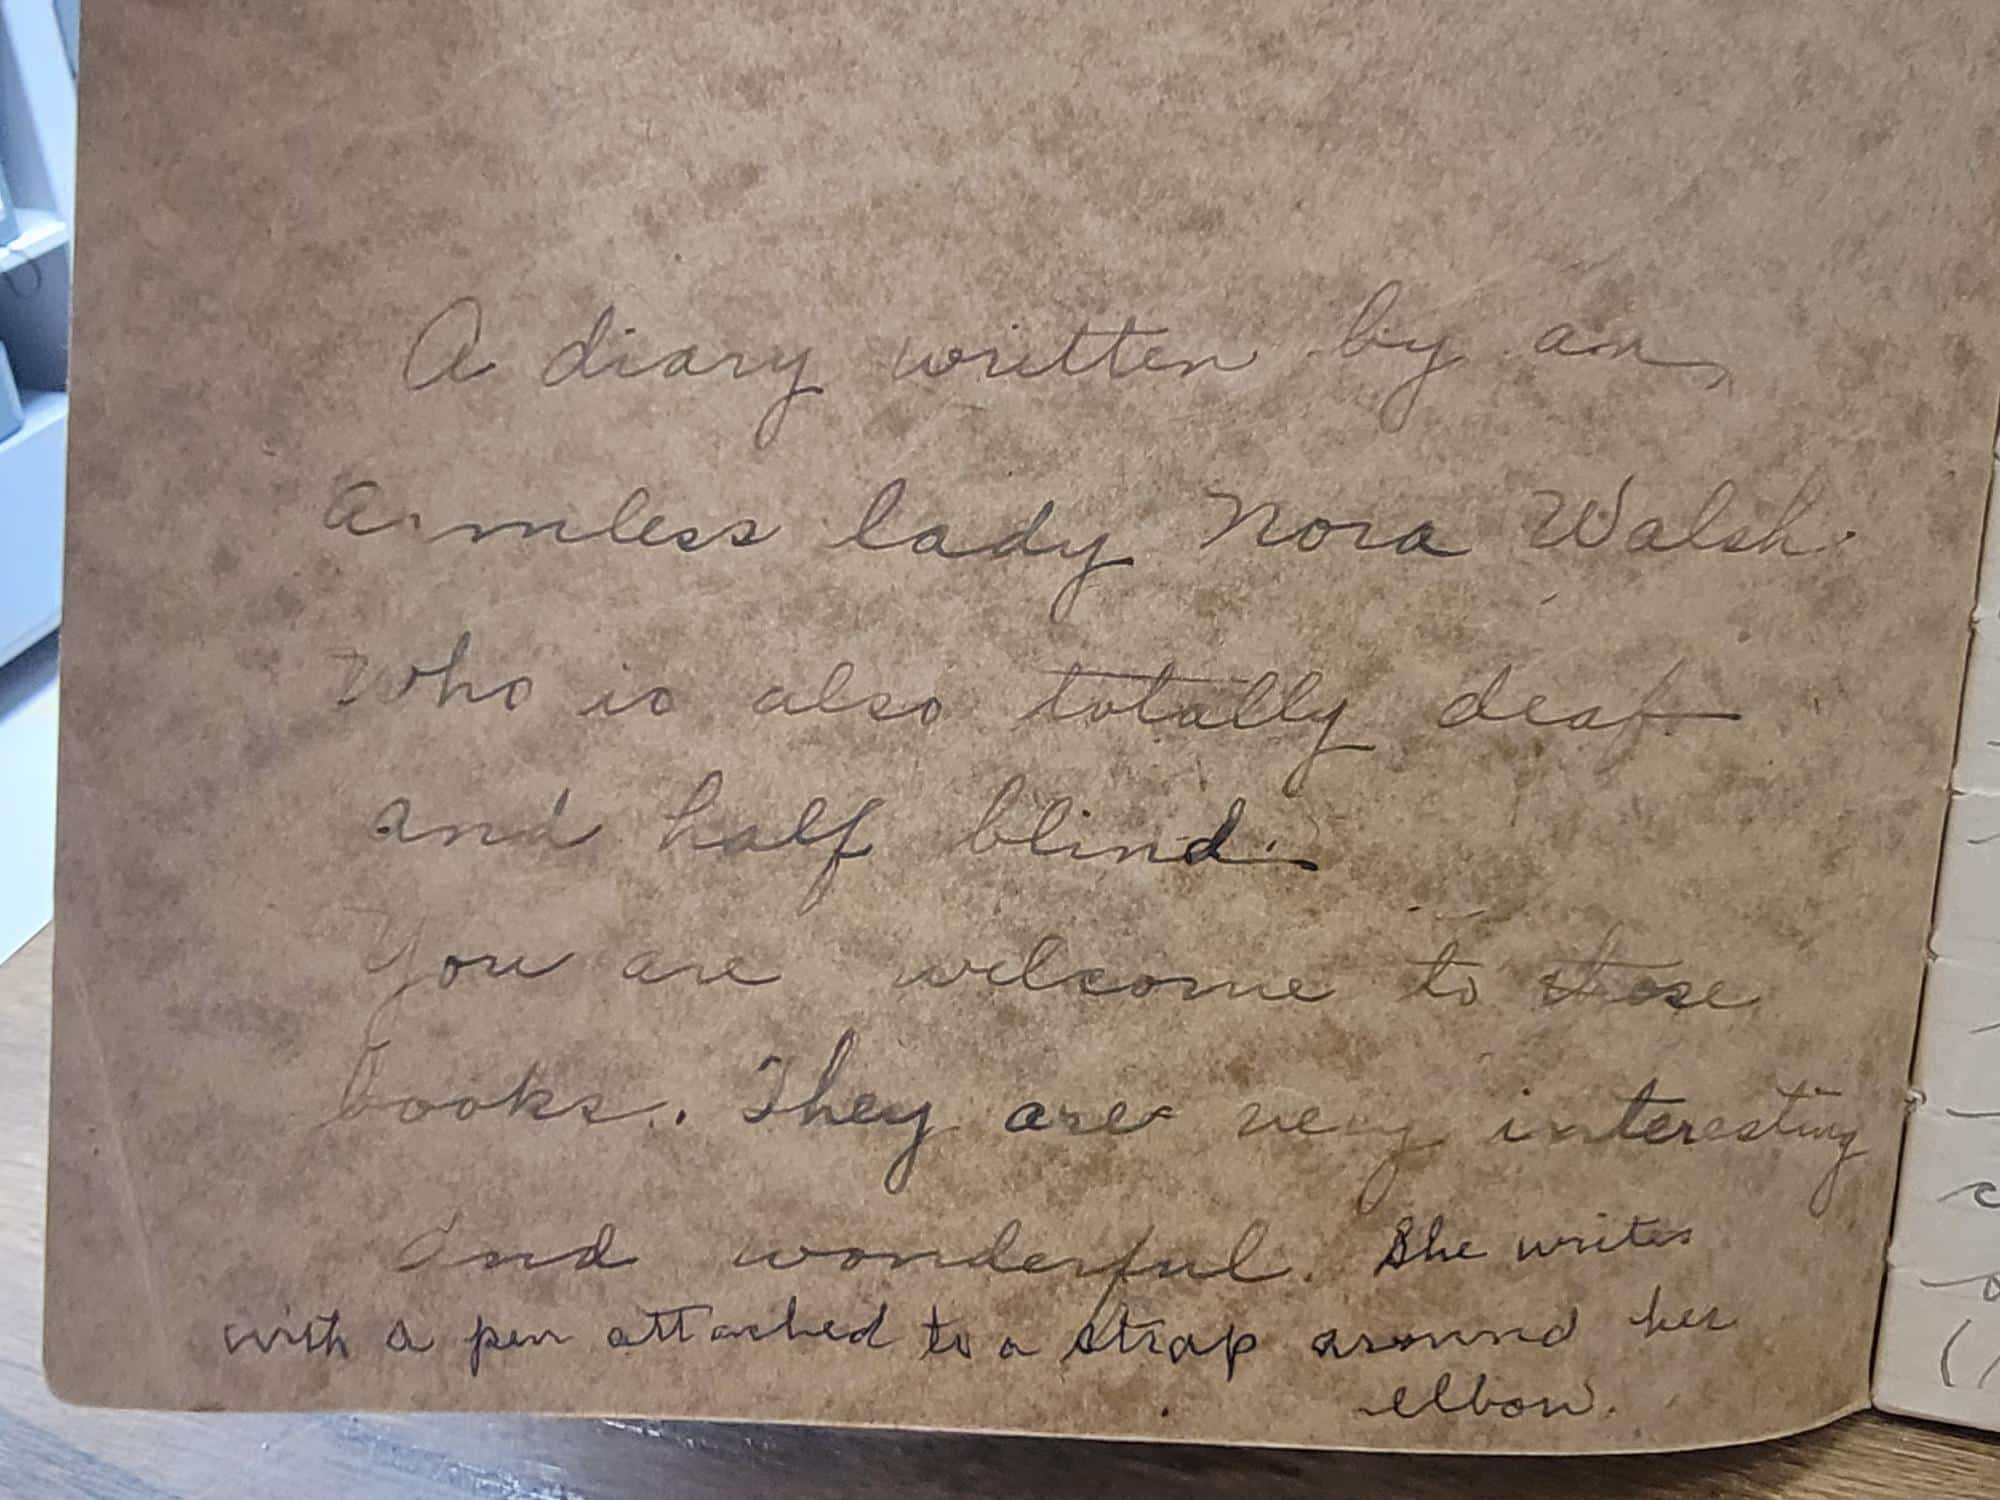 A diary written by an
armless lady Nora Walsh
Who is also totally deaf
and half blind.
You are welcome to those
books. They are very interesting
and wonderful. She writes
with a pen attached to a strap around her
elbow.